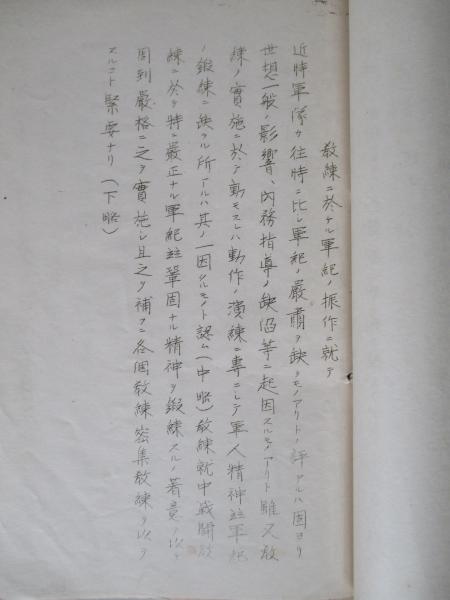 教練ニ於ケル軍紀ノ振作ニ就テ
近時軍隊カ往時ニ比シ軍紀ノ厳粛ヲ欠クモノアリトノ評アルハ固ヨリ
世想一般ノ影響、内務指導ノ缺陥等ニ起因スルモノアリト雖又教
練ノ實施ニ於テ動モスレハ動作ノ演練ニ専ニシテ軍人精神竝軍紀
ノ鍛練ニ缺クル所アルハ其ノ一因タルモノト認ム(中略)教練就中戦闘教
練ニ於テ特ニ厳正ナル軍紀竝鞏固ナル精神ヲ鍛練スルノ著意ヲ以テ
周到厳格ニ之ヲ實施シ且之ヲ補フニ各個教練密集教練ヲ以テ
スルコト緊要ナリ(下略)